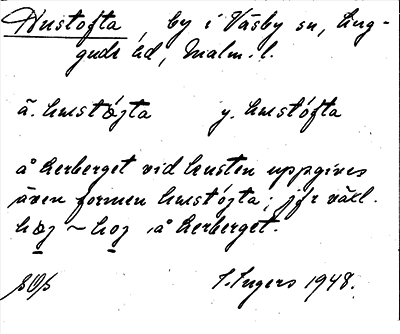 Hustofta, by i Väsby sn, Lug-
gude hd, Malm. l.
ä. hustózta y. hustófta
å herberget vid kusten uppgives
även formen hustózta; jfr växl.
hœz ~ hoz å herberget.
I. Ingers 1948.